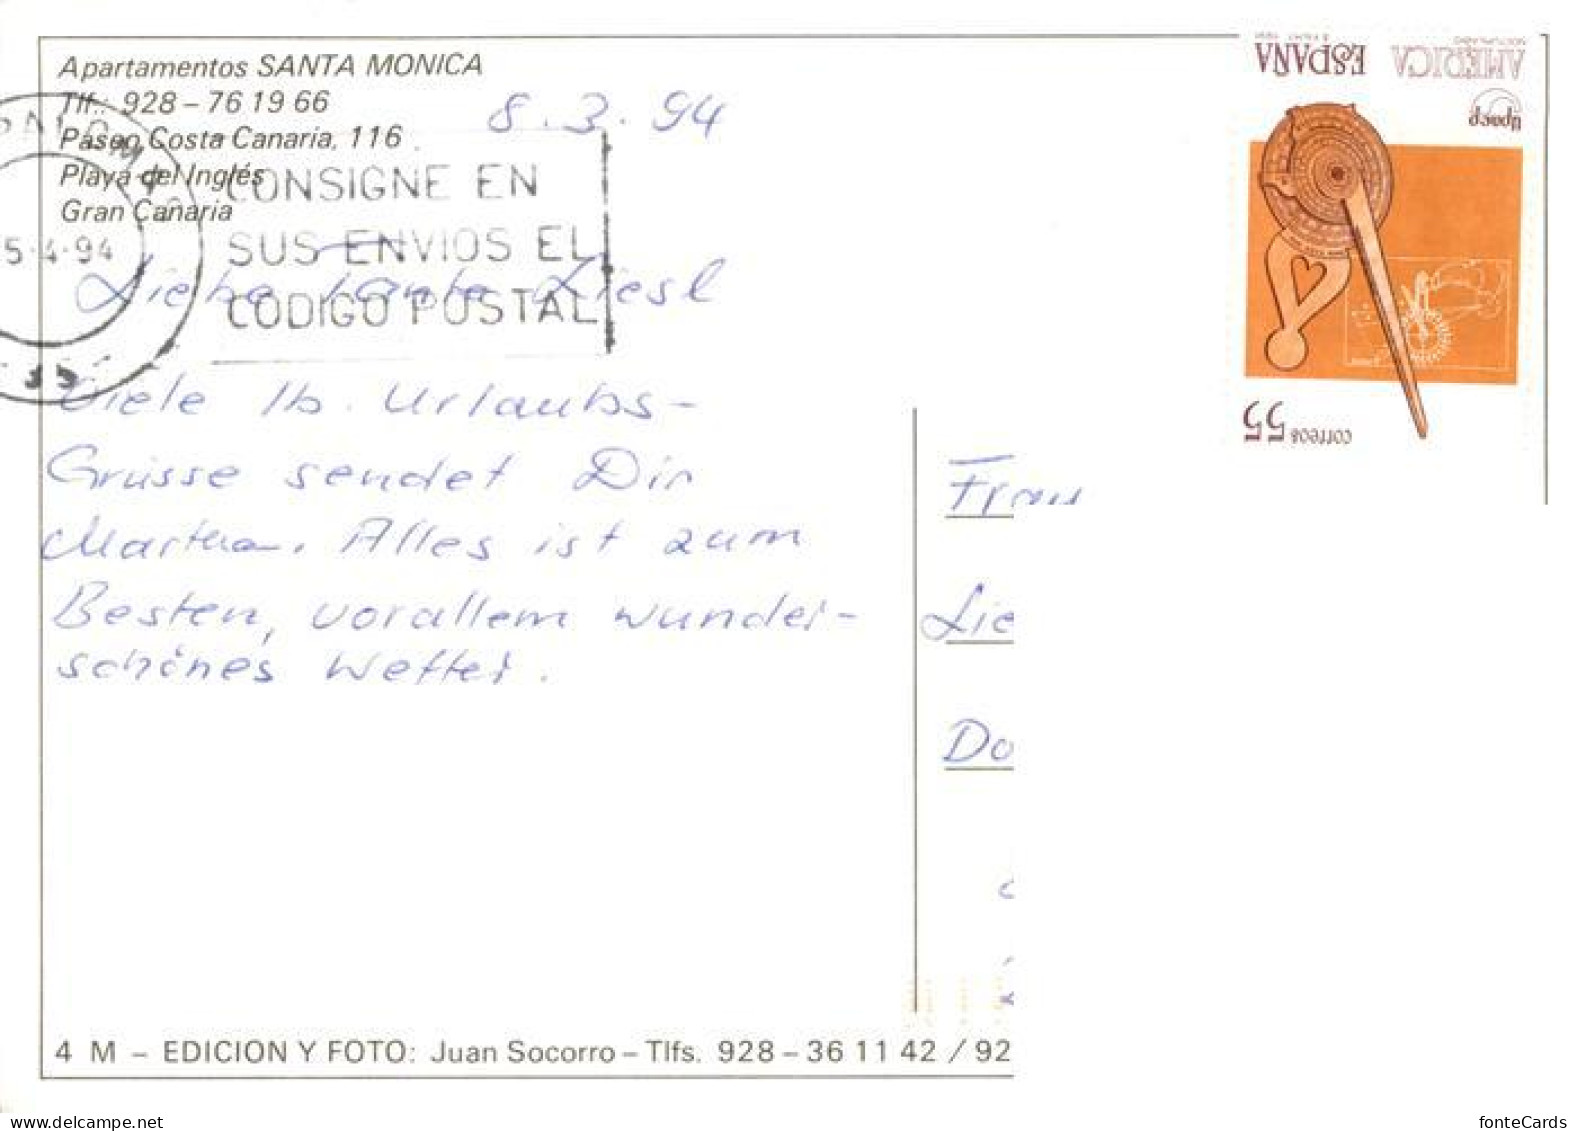 Apartamentos SANTA MONICA
Tlf.: 928 – 76 19 66
Paseo Costa Canaria, 116
Playa del Inglés
Gran Canaria
8.3.94
CONSIGNE EN
SUS ENVIOS EL
CODIGO POSTAL
5-4-94
Liebe Tante Liesl
Viele lb. Urlaubs-
Grüsse sendet Dir
Martha. Alles ist zum
Besten, vorallem wunder-
schönes Wetter.
ESPAÑA
AMERICA
upaep
correos
55
Frau
Lie
Do
4 M – EDICION Y FOTO: Juan Socorro – Tlfs. 928 – 36 11 42 / 92
delcampe.net
fonteCards